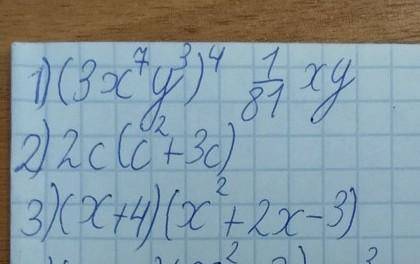 1) (3x⁷y³)⁴ 1/81 xy
2) 2c(c²+3c)
3) (x+4)(x²+2x-3)